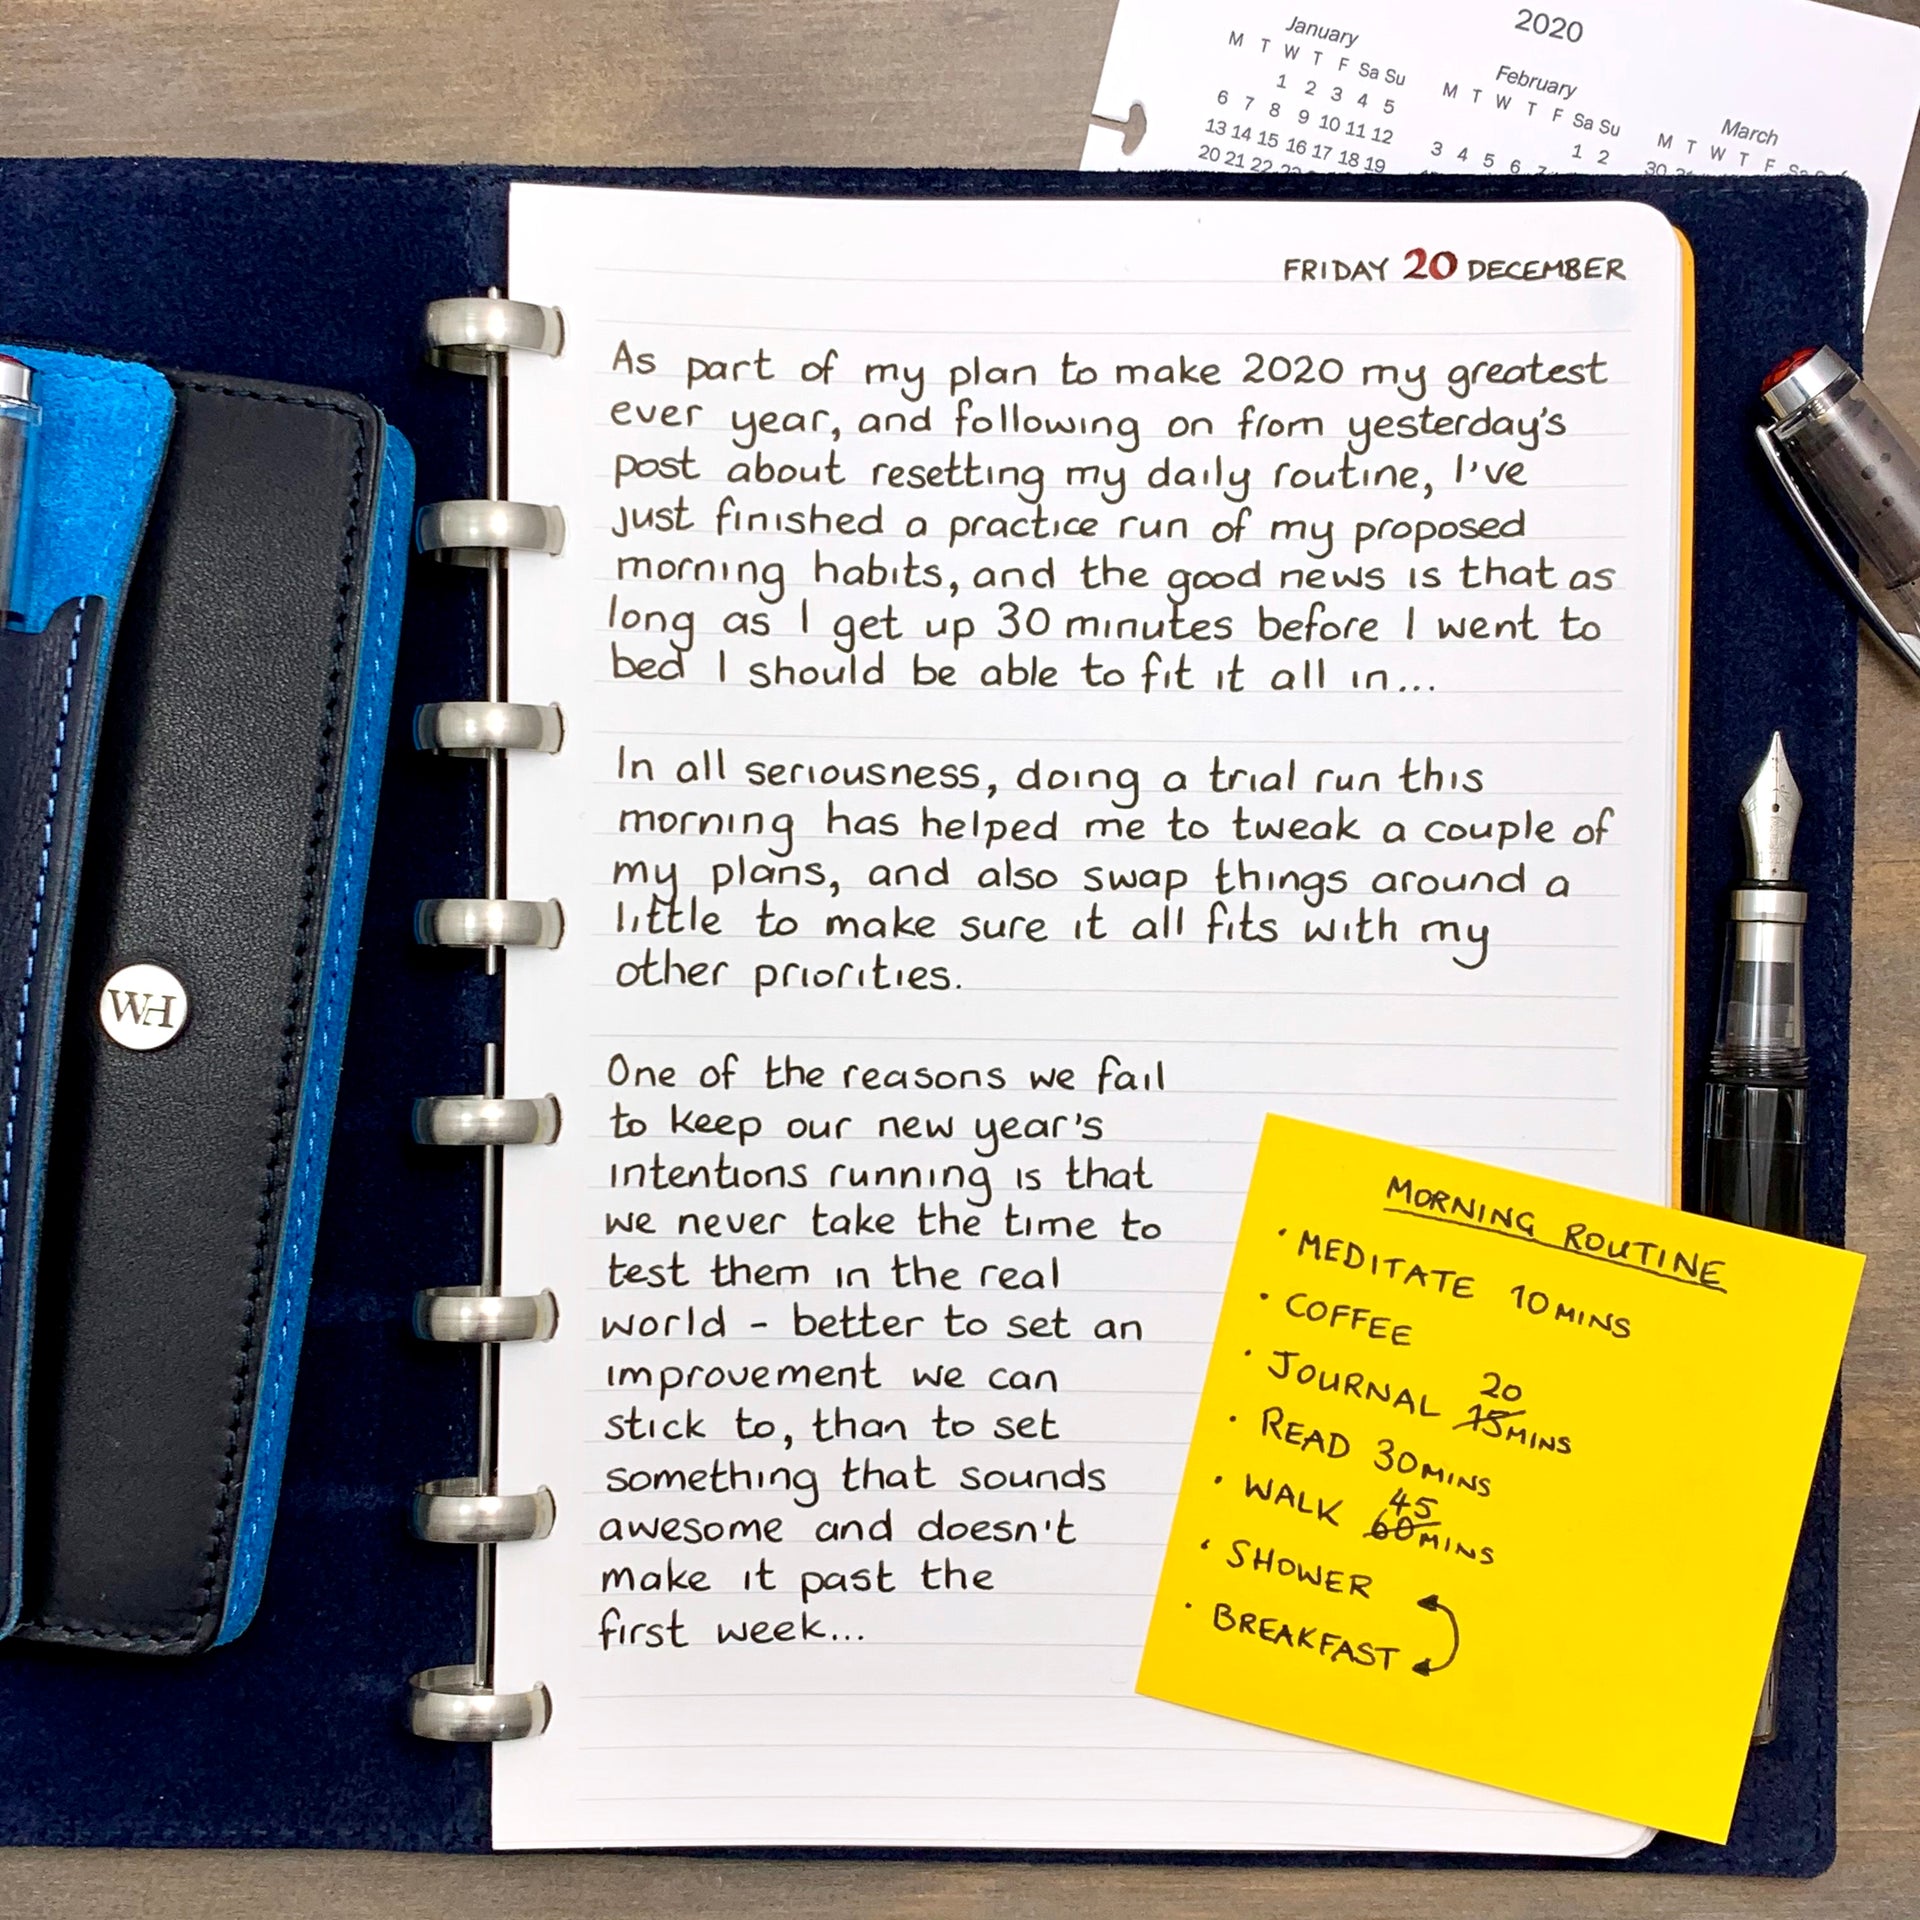 2020
January
M T W T F Sa Su
1 2 3 4 5
6 7 8 9 10 11 12
13 14 15 16 17 18 19
20 21 22
February
M T W T F Sa Su
1 2
3 4 5 6
March
M T W T F
30
FRIDAY 20 DECEMBER
As part of my plan to make 2020 my greatest
ever year, and following on from yesterday's
post about resetting my daily routine, I've
just finished a practice run of my proposed
morning habits, and the good news is that as
long as I get up 30 minutes before I went to
bed I should be able to fit it all in...
In all seriousness, doing a trial run this
morning has helped me to tweak a couple of
my plans, and also swap things around a
little to make sure it all fits with my
other priorities.
One of the reasons we fail
to keep our new year's
intentions running is that
we never take the time to
test them in the real
world - better to set an
improvement we can
stick to, than to set
something that sounds
awesome and doesn't
make it past the
first week...
MORNING ROUTINE
• MEDITATE 10 MINS
• COFFEE
20
• JOURNAL 15 MINS
• READ 30 MINS
45
• WALK 60 MINS
• SHOWER
• BREAKFAST
WH